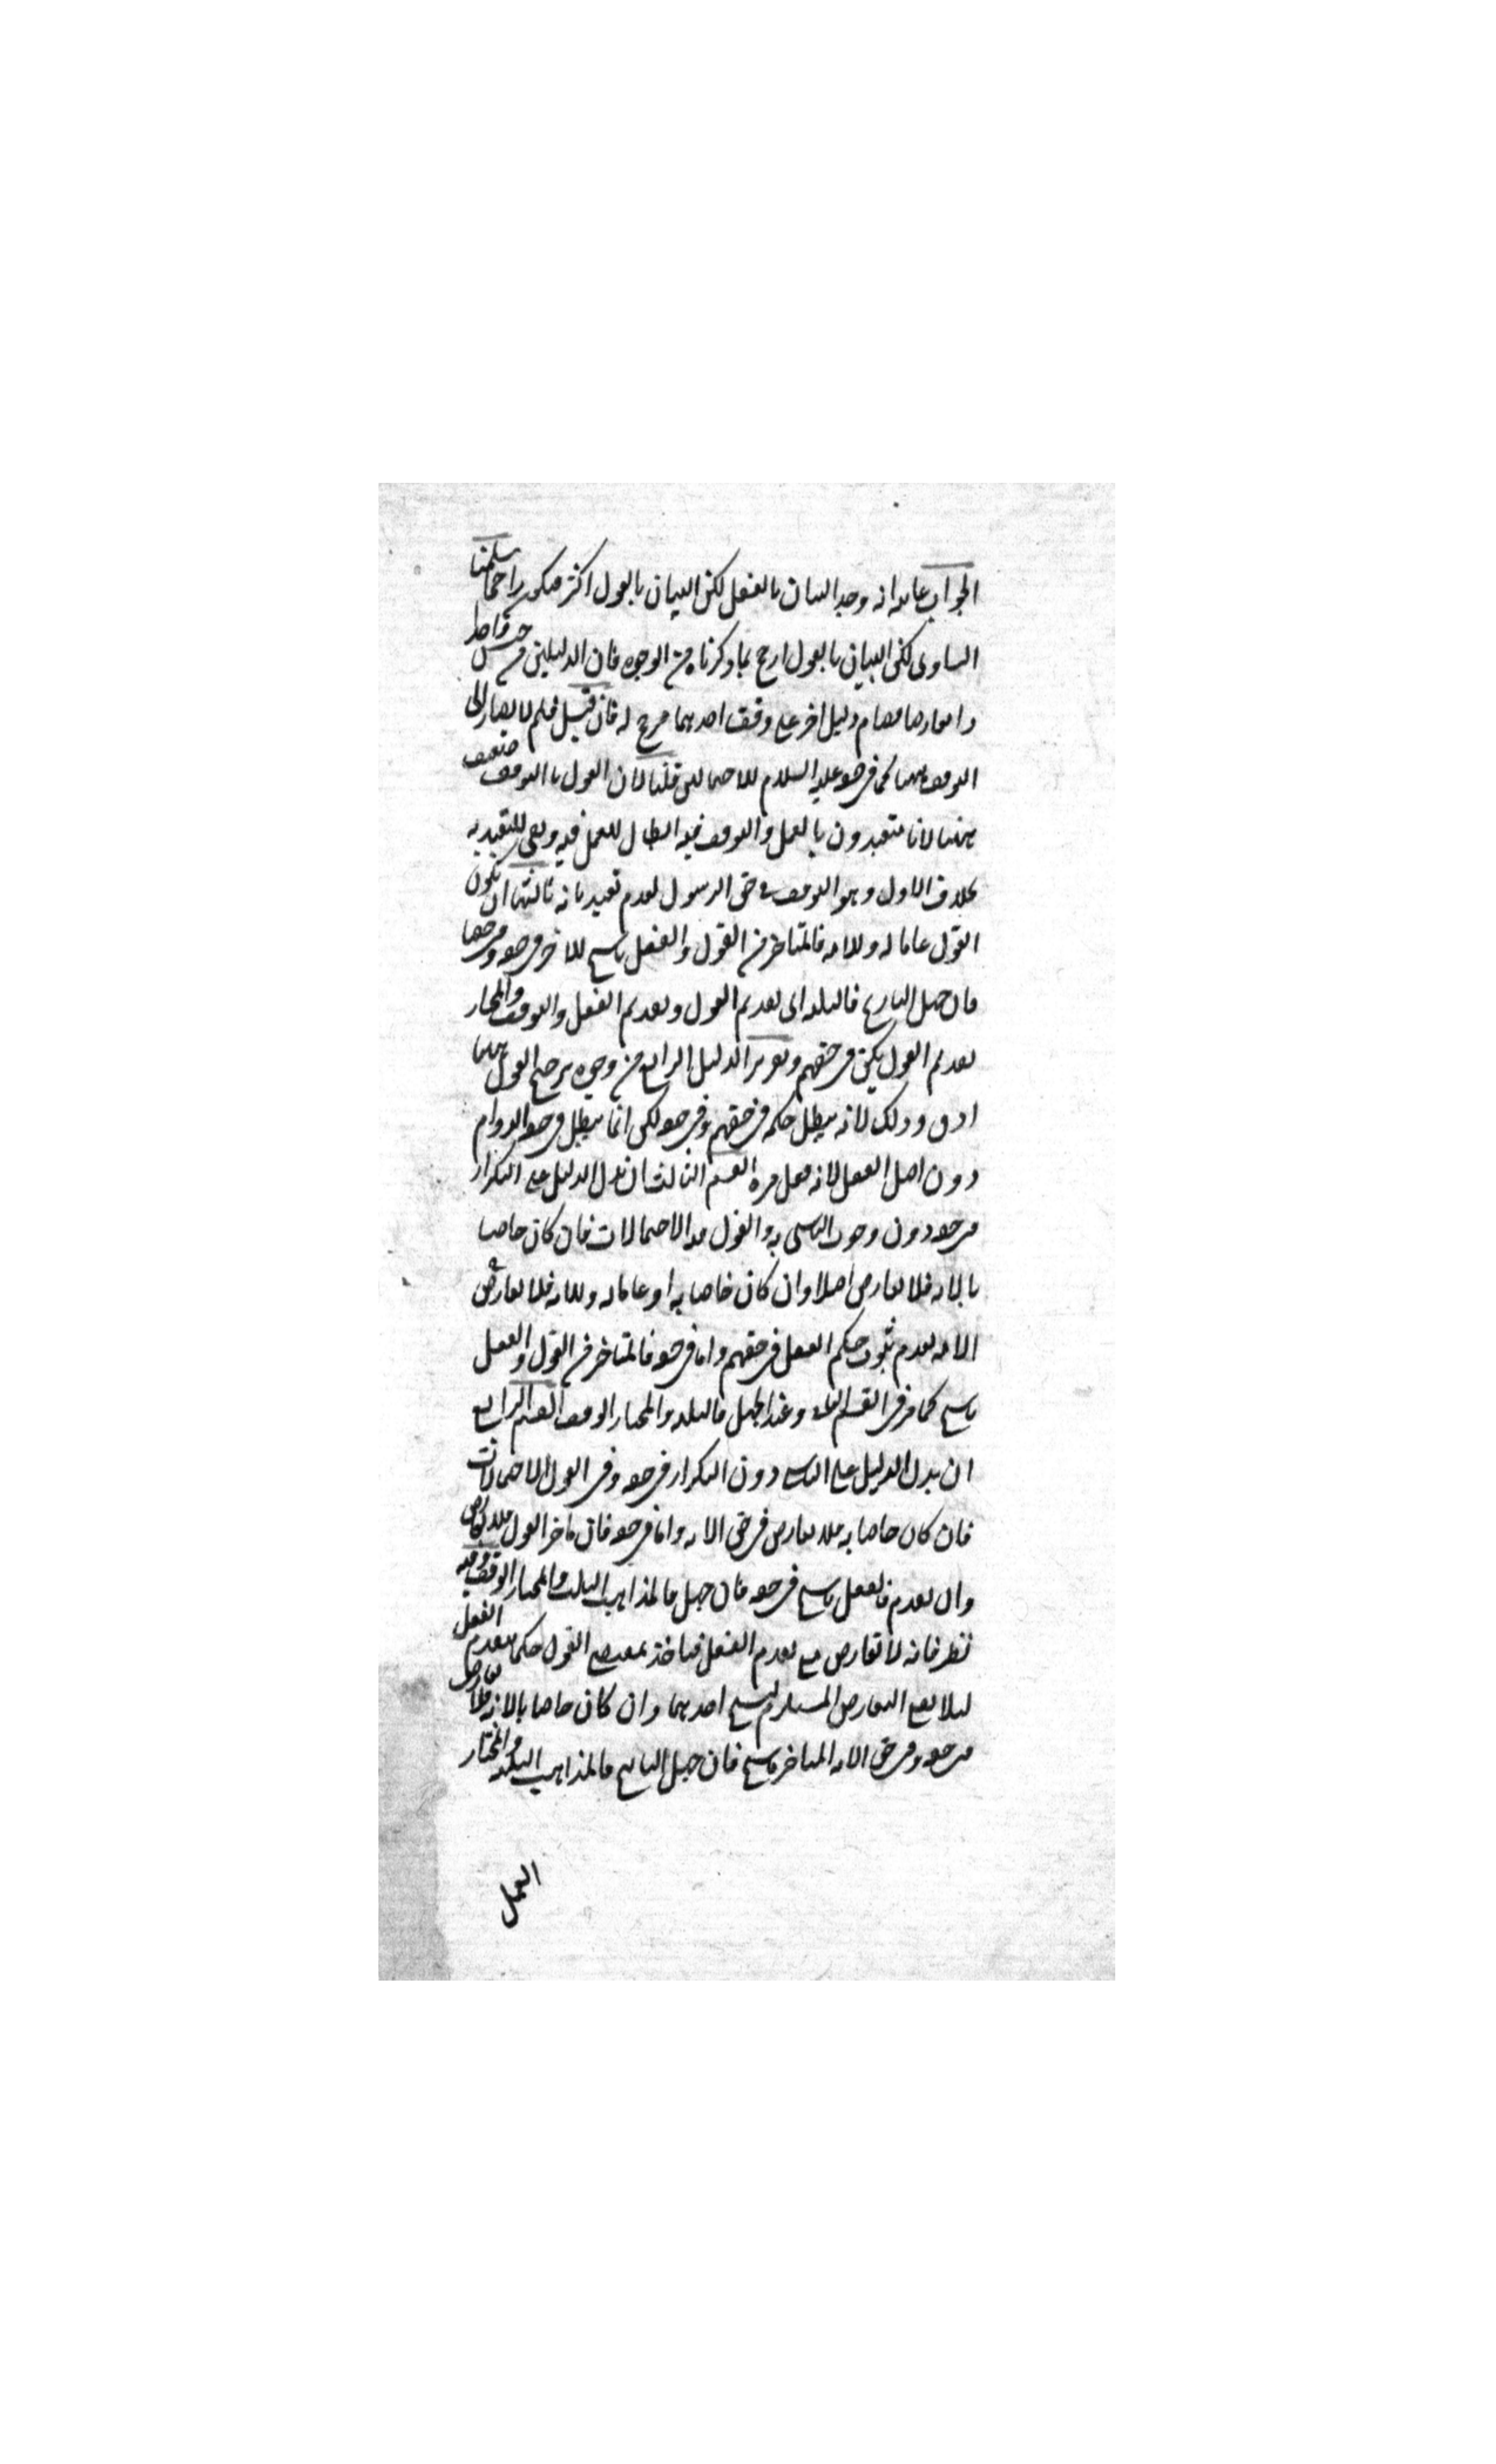 الجواب غايته انه وجد البيان بالفعل لكن البيان بالقول اكثر فيكون راجحا سلمنا
التساوي لكن البيان بالقول ارجح بما ذكرناه من الوجوه فان الدليلين من جنس واحد
اذا تعارضا فقام دليل اخر على وفق احدهما مرجح له فان قيل فلم لا يصار الى
التوقف ههنا كما في حقه عليه السلام للاحتمالين قلنا لان القول بالتوقف ضعيف
ههنا لانا متعبدون بالعمل والتوقف فيه ابطال للعمل فيه ونفي للتعبد به
بخلاف الاول وهو التوقف في حق الرسول لعدم تعبدنا به ثالثها ان يكون
القول عاما له وللامة فالمتاخر من القول والفعل ناسخ للاخر في حقه وفي حقنا
فان جهل التاريخ فالثلاثة اي تقديم القول وتقديم الفعل والتوقف والمختار
تقديم القول لكن في حقهم وتقرير الدليل الرابع من وجوه ترجيح القول ههنا
ادق وذلك لانه يبطل حكمه في حقهم وفي حقه لكن انما يبطل في حقه الدوام
دون اصل الفعل لانه فعل مرة القسم الثالث ان يدل الدليل على التكرار
في حقه دون وجوب التاسي به والقول فيه الاحتمالات فان كان خاصا
بالامة فلا تعارض اصلا وان كان خاصا به او عاما له وللامة فلا تعارض في
الامة لعدم ثبوت حكم الفعل في حقهم واما في حقه فالمتاخر من القول والفعل
ناسخ كما مر في القسم وعند الجهل فالثلاثة والمختار الوقف القسم الرابع
ان يدل الدليل على التاسي دون التكرار في حقه وفي القول الاحتمالات
فان كان خاصا به فلا تعارض في حق الامة واما في حقه فان تاخر القول فلا تعارض
وان تقدم فالفعل ناسخ في حقه فان جهل فالمذاهب الثلث والمختار الوقف وفيه
نظر فانه لا تعارض مع تقدم الفعل فناخذ بمقتضى القول حكما بتقدم الفعل
لئلا يقع التعارض المستلزم لنسخ احدهما وان كان خاصا بالامة فلا تعارض
في حقه وفي حق الامة المتاخر ناسخ فان جهل التاريخ فالمذاهب الثلثة والمختار
العمل